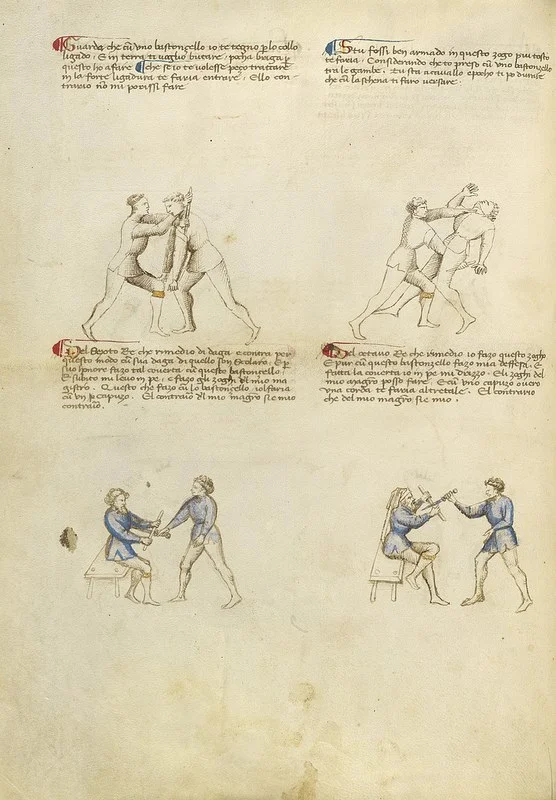 Guarda che cũ uno bastonzello io te tegno p lo collo
ligado. E in terra ti voglio butare. pocha braga p
questo ho a fare che se io te volesse pezo trattare
in la forte ligadura te faria entrare. E lo con-
trario nõ mi porissi fare
Stu fossi ben armado in questo zogo piu tosto
te faria. Considerando che to preso cũ uno bastonzello
tra le gambe. tu sta acavallo e pocho ti po durale
che cũ la schena ti faro versare.
Del Sexto Re che rimedio di daga e contra per
questo modo cũ sua daga di quello son ben claro. E p
suo honore fazo tal coverta cũ questo bastoncello.
E subito mi levo in pe. e fazo gli zoghi dl mio ma
gistro. Questo che fazo cũ lo bastoncello lo faria
cũ un capuzo. E l contrario dl mio magro si e mio
contrario.
Del octavo Re che rimedio io fazo questo zogho
E pur cũ questo bastonzello fazo mia deffesa. E
fatta la coverta io in pe mi drizzo. E li zoghi del
mio magro posso fare. E cũ uno capuzo overo
una corda te faria altretale. E l contrario
che del mio magro si e mio.